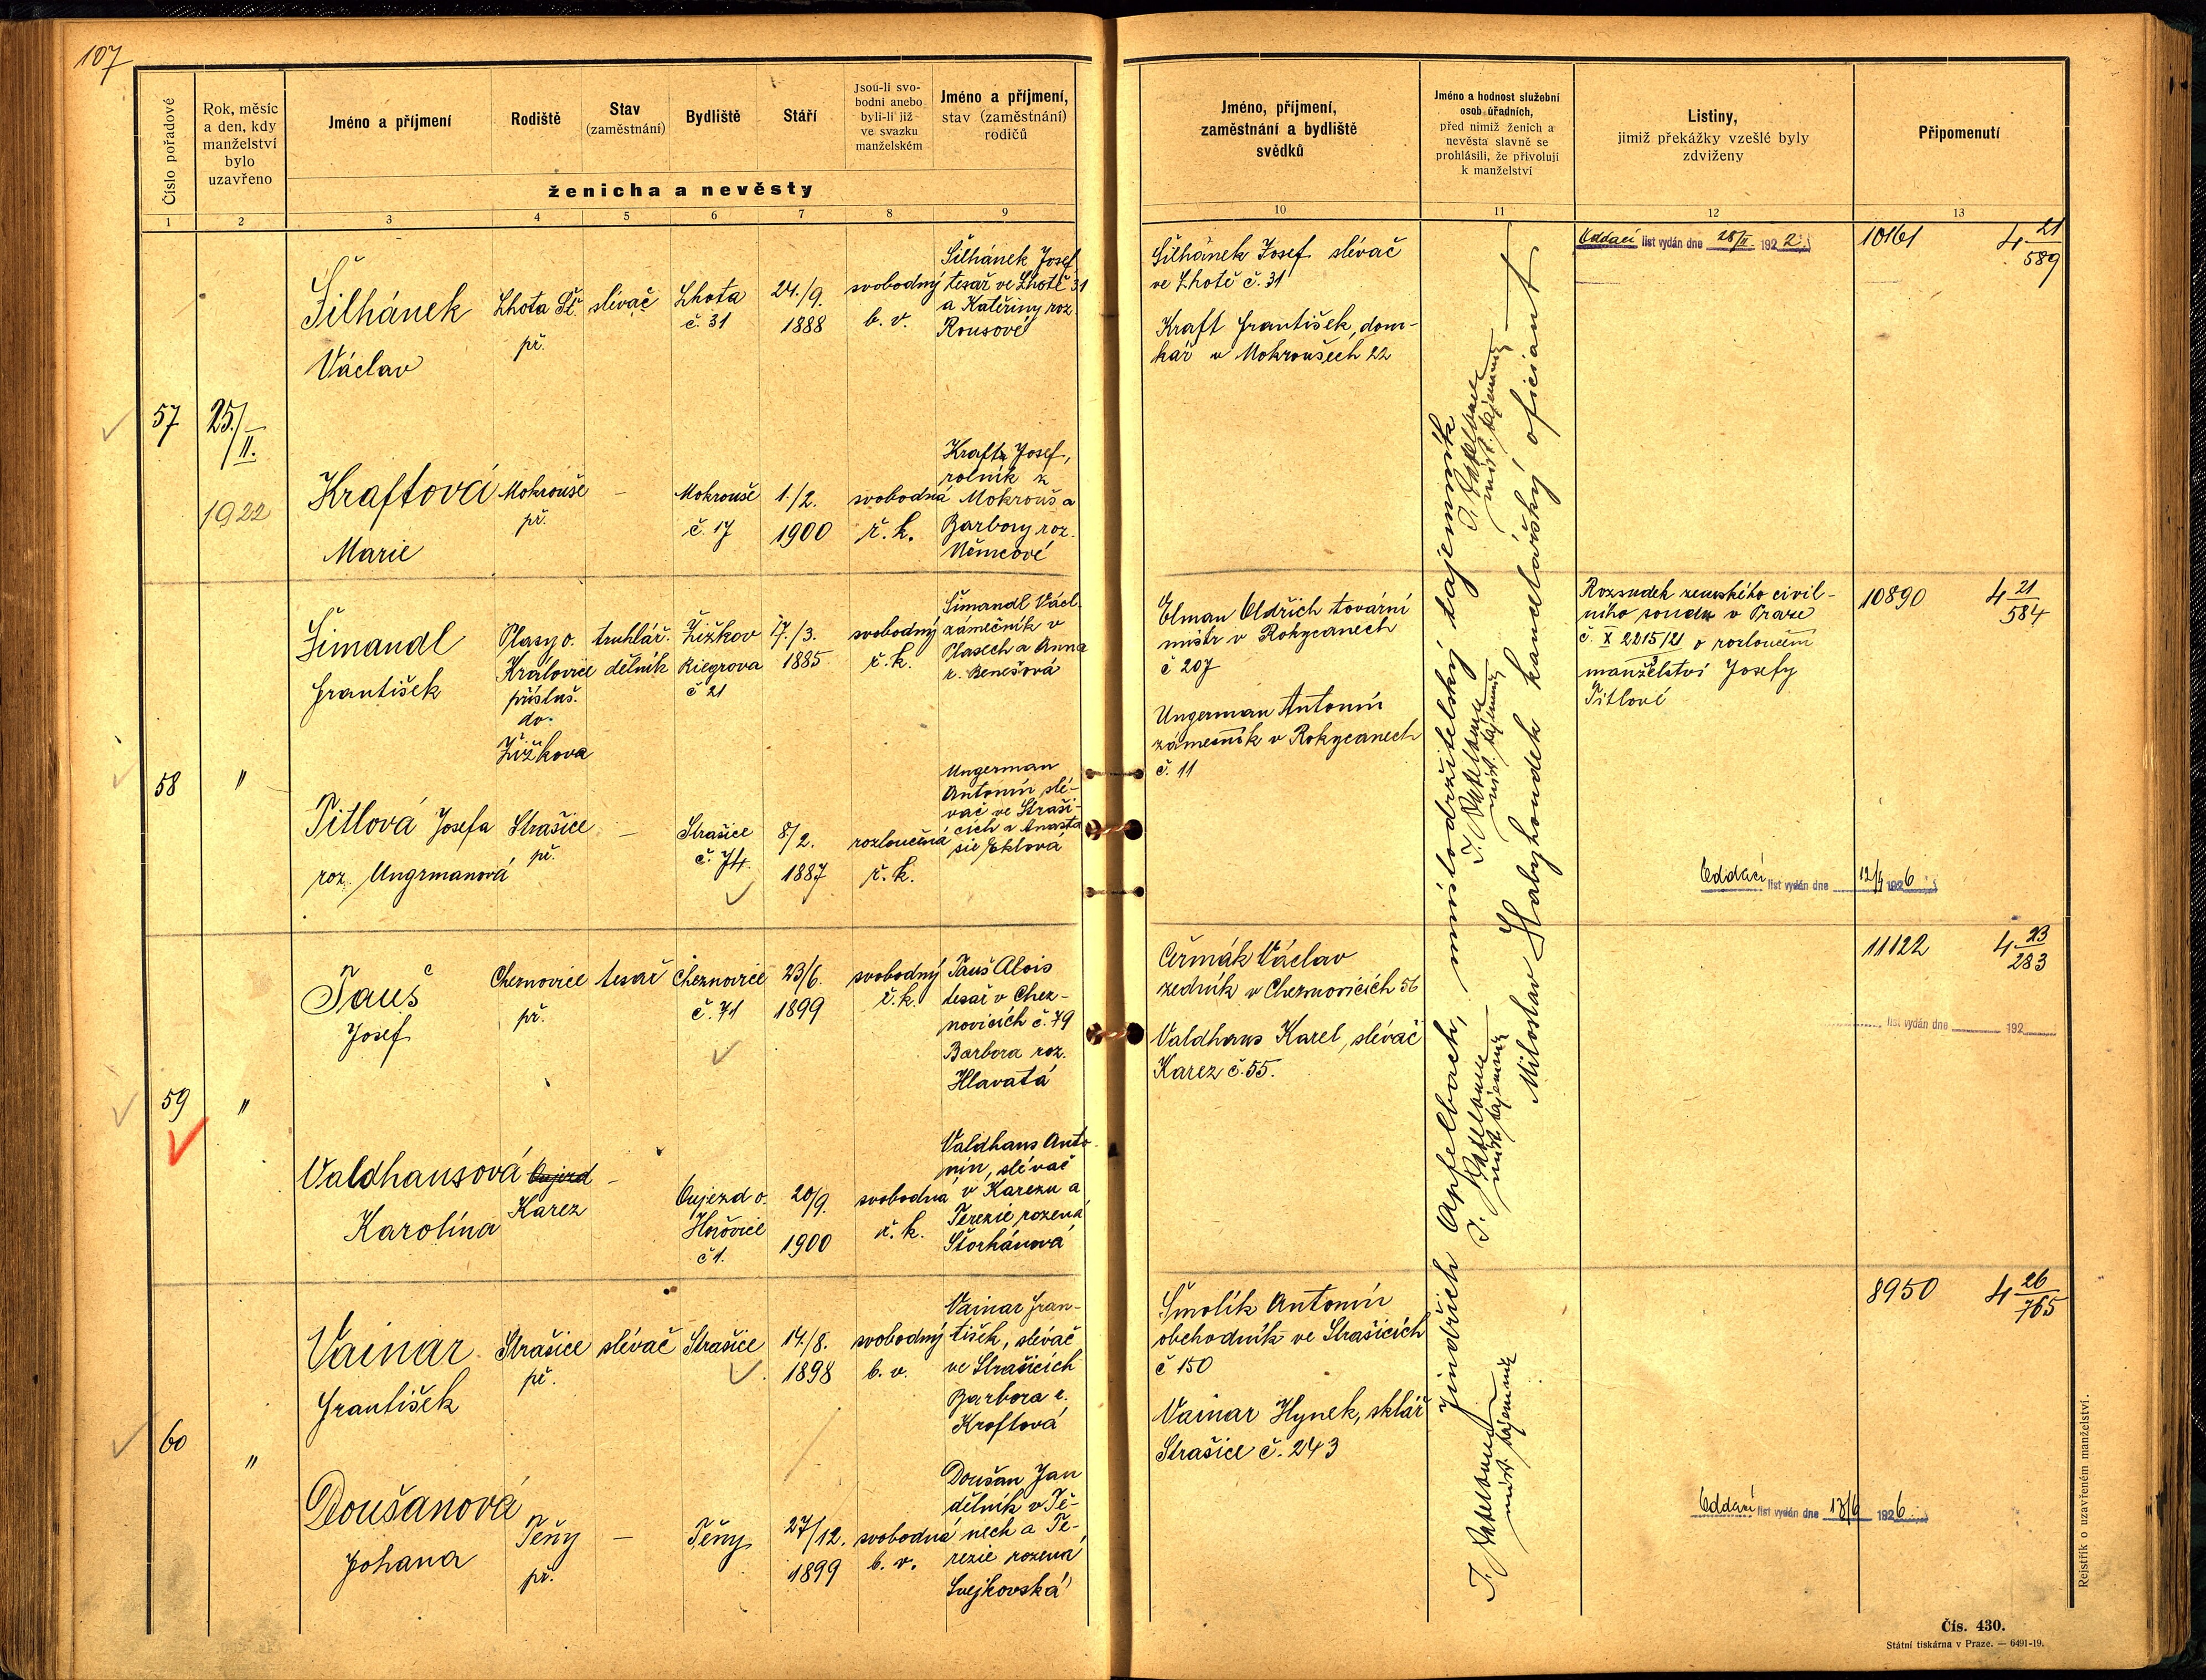 107
Číslo pořadové
Rok, měsíc
a den, kdy
manželství
bylo
uzavřeno
Jméno a příjmení
Rodiště
Stav
(zaměstnání)
Bydliště
Stáří
Jsou-li svo-
bodni anebo
byli-li již
ve svazku
manželském
Jméno a příjmení,
stav (zaměstnání)
rodičů
ženicha a nevěsty
Jméno, příjmení,
zaměstnání a bydliště
svědků
Jméno a hodnost služební
osob úřadních,
před nimiž ženich a
nevěsta slavně se
prohlásili, že přivolují
k manželství
Listiny,
jimiž překážky vzešlé byly
zdviženy
Připomenutí
1 2 3 4 5 6 7 8 9 10 11 12 13
57
25./II.
1922
Šilhánek
Václav
Lhota
př.
slévač
Lhota
č. 31
24./9.
1888
svobodný
b. v.
Šilhánek Josef
tesař ve Lhotě 31
a Kateřiny roz.
Rousové
Kraftová
Marie
Mokrouše
př.
–
Mokrouše
č. 17
1./2.
1900
svobodná
ř. k.
Kraft Josef,
rolník z
Mokrouš a
Barbory roz.
Němcové
Šilhánek Josef slévač
ve Lhotě č. 31
Kraft František, dom-
kář v Mokroušech 22
Oddací list vydán dne 28/II. 1922
10161
4 21/589
58
"
Šimandl
František
Plasy o.
Kralovice
přísluš.
do
Žižkova
truhlář.
dělník
Žižkov
Riegrova
č 21
17./3.
1885
svobodný
ř. k.
Šimandl Václ.
zámečník v
Plasech a Anna
r. Benešová
Titlová Josefa
roz. Ungrmanová
Strašice
př.
–
Strašice
č. 74.
8/2.
1887
rozloučená
ř. k.
Ungerman
Antonín slé-
vač ve Straši-
cích a Anasta
sie Eklová
Elman Oldřich tovární
mistr v Rokycanech
č 207
Ungerman Antonín
zámečník v Rokycanech
č. 11
Rozsudek zemského civil-
ního soudu v Praze
č. X 2215/21 o rozloučení
manželství Josefy
Titlové
10890
4 21/584
Oddací list vydán dne 1926
59
"
Tauš
Josef
Cheznovice
př.
tesař
Cheznovice
č. 71
23/6.
1899
svobodný
ř. k.
Tauš Alois
tesař v Chez-
novicích č. 79
Barbora roz.
Hlavatá
Valdhansová
Karolína
Oujezd
Karez
–
Oujezd o.
Hořovice
č 1.
20/9.
1900
svobodná
ř. k.
Valdhans Anto-
nín, slévač
v Karezu a
Terezie rozená
Štorhánová
Čermák Václav
zedník v Cheznovicích 56
Valdhans Karel, slévač
Karez č. 55.
11122
4 23/283
list vydán dne 192
60
"
Vainar
František
Strašice
př.
slévač
Strašice
14./8.
1898
svobodný
b. v.
Vainar Fran-
tišek, slévač
ve Strašicích
Barbora r.
Kroftová
Doušanová
Johana
Těny
př.
–
Těny
27/12.
1899
svobodná
b. v.
Doušan Jan
dělník v Tě-
nech a Te-
rezie rozená
Švejkovská
Smolík Antonín
obchodník ve Strašicích
č 150
Vainar Hynek, sklář
Strašice č. 243
8950
4 26/765
Oddací list vydán dne 1926
Jindřich Apfelbach, místodržitelský tajemník
Miloslav Habyhoudek kancelářský oficiant
Rejstřík o uzavřeném manželství.
Čís. 430.
Státní tiskárna v Praze. — 6491-19.